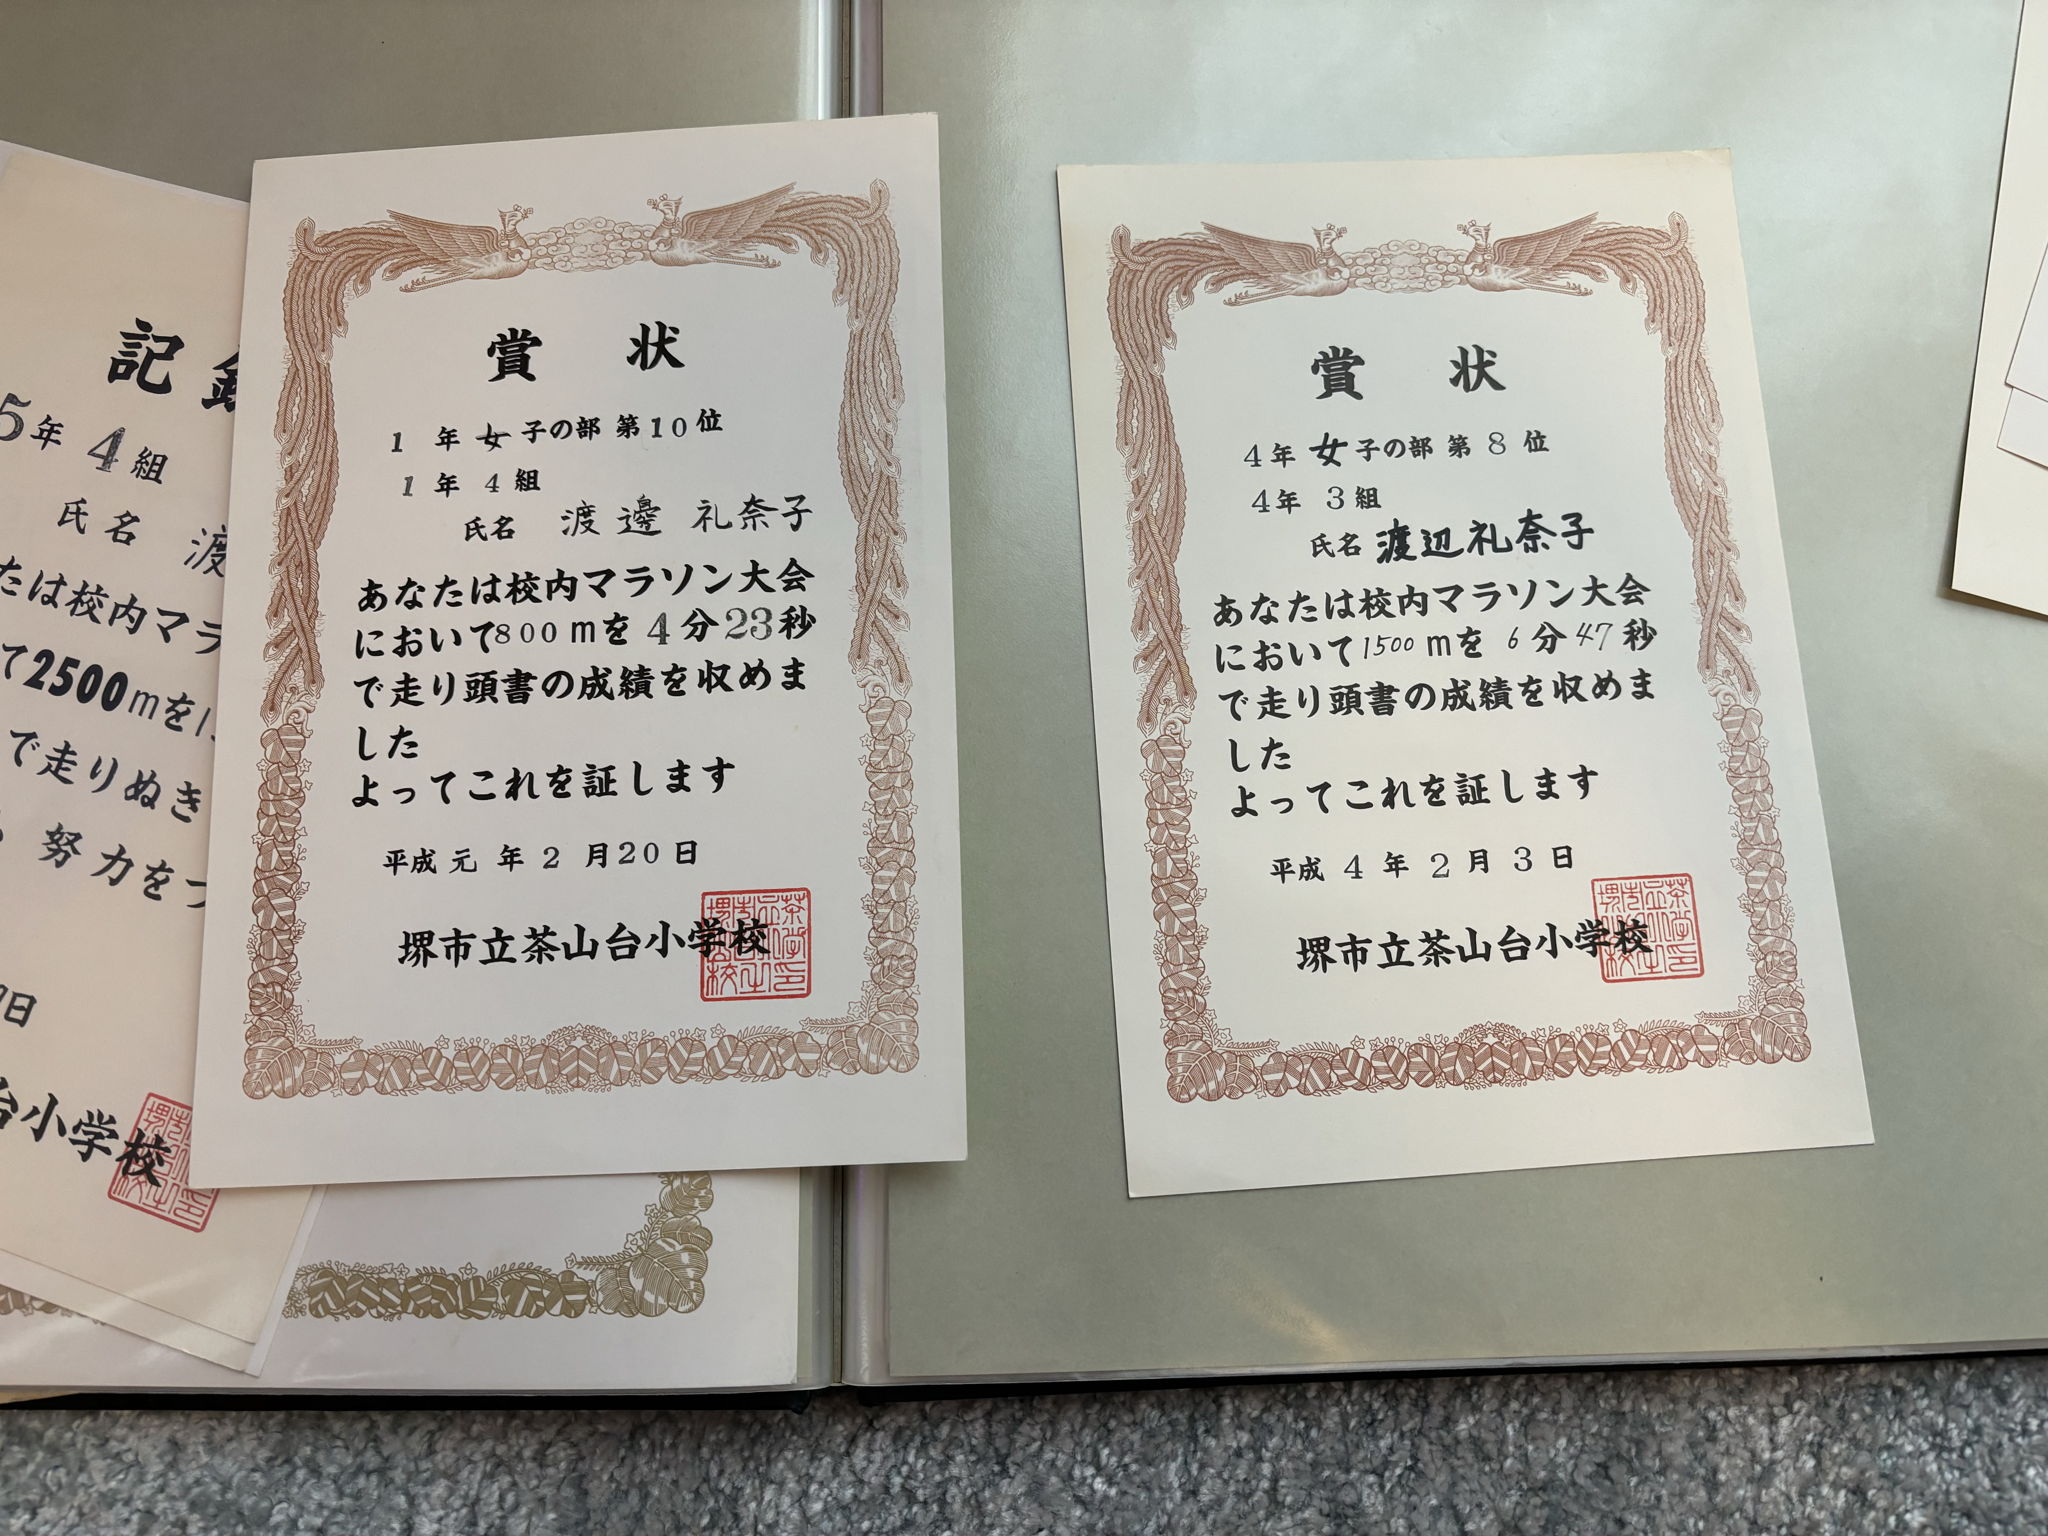 記
5年 4組
氏名 渡
たは校内マラ
て2500mを
で走りぬき
努力をつ
日
台小学校
賞 状
1 年 女子の部 第10位
1 年 4 組
氏名 渡邊 礼奈子
あなたは校内マラソン大会
において800mを 4分23秒
で走り頭書の成績を収めま
した
よってこれを証します
平成 元 年 2 月20日
堺市立茶山台小学校
賞 状
4年 女子の部 第 8 位
4年 3組
氏名 渡辺礼奈子
あなたは校内マラソン大会
において1500mを 6分47秒
で走り頭書の成績を収めま
した
よってこれを証します
平成 4 年 2 月 3 日
堺市立茶山台小学校